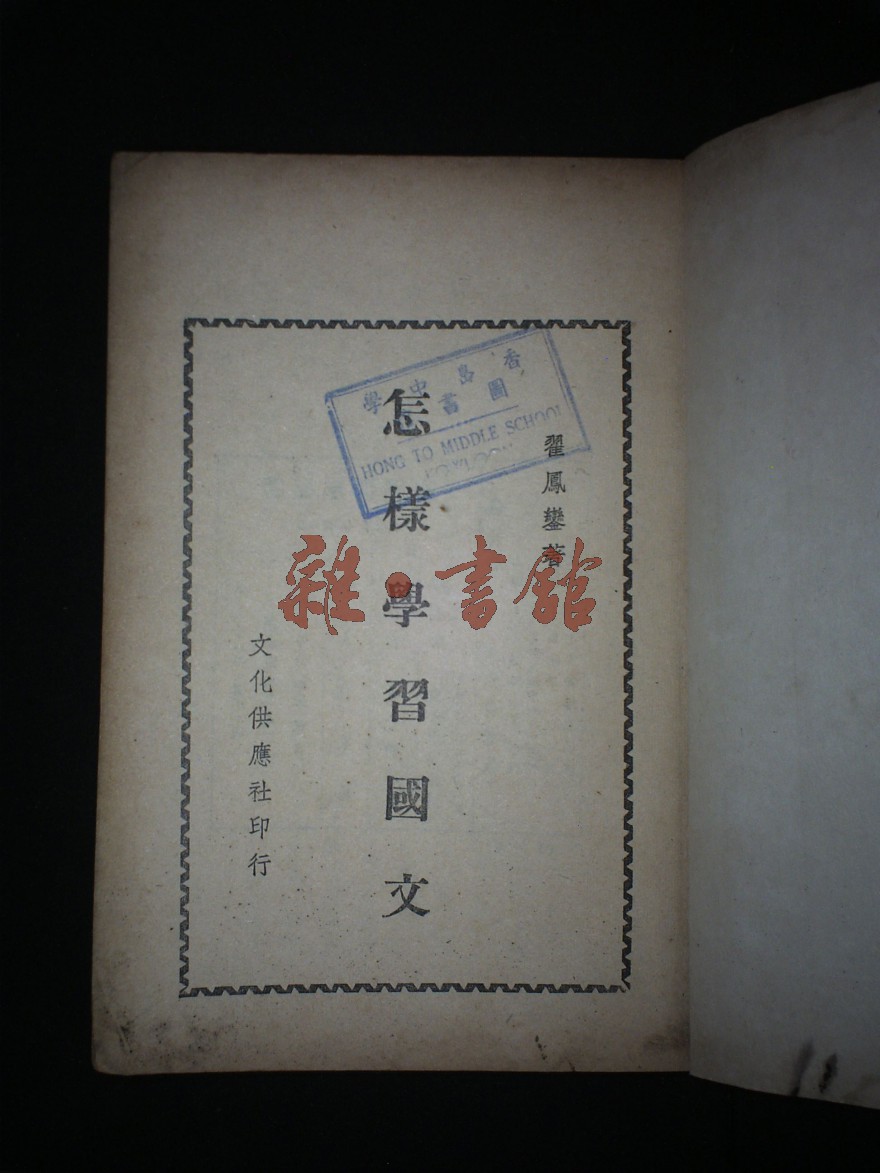 翟鳳鑾著
怎樣學習國文
文化供應社印行
香島中學
圖書
HONG TO MIDDLE SCHOOL
KOWLOON
雜·書館